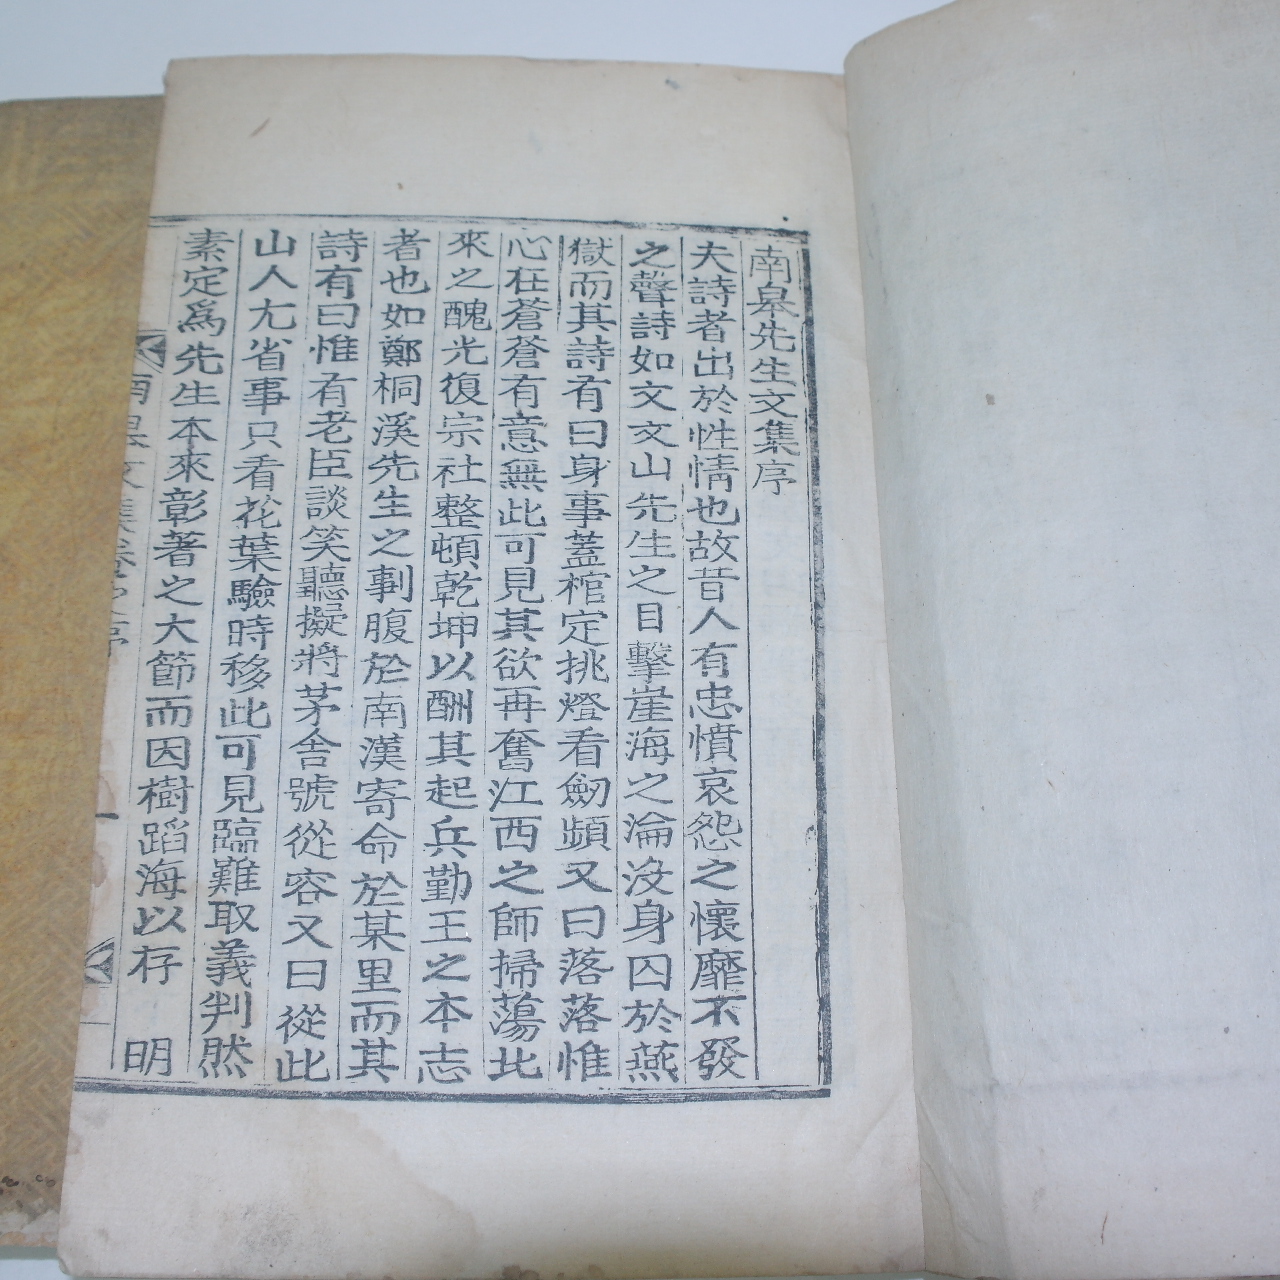 南皐先生文集序
夫詩者出於性情也故昔人有忠憤哀怨之懷靡不發
之聲詩如文文山先生之目擊崖海之淪沒身囚於燕
獄而其詩有曰身事蓋棺定挑燈看劒頻又曰落落惟
心在蒼蒼有意無此可見其欲再奮江西之師掃蕩北
來之醜光復宗社整頓乾坤以酬其起兵勤王之本志
者也如鄭桐溪先生之剚腹於南漢寄命於某里而其
詩有曰惟有老臣談笑聽擬將茅舍號從容又曰從此
山人尤省事只看花葉驗時移此可見臨難取義判然
素定爲先生本來彰著之大節而因樹蹈海以存　明
南皐文集卷之序
一